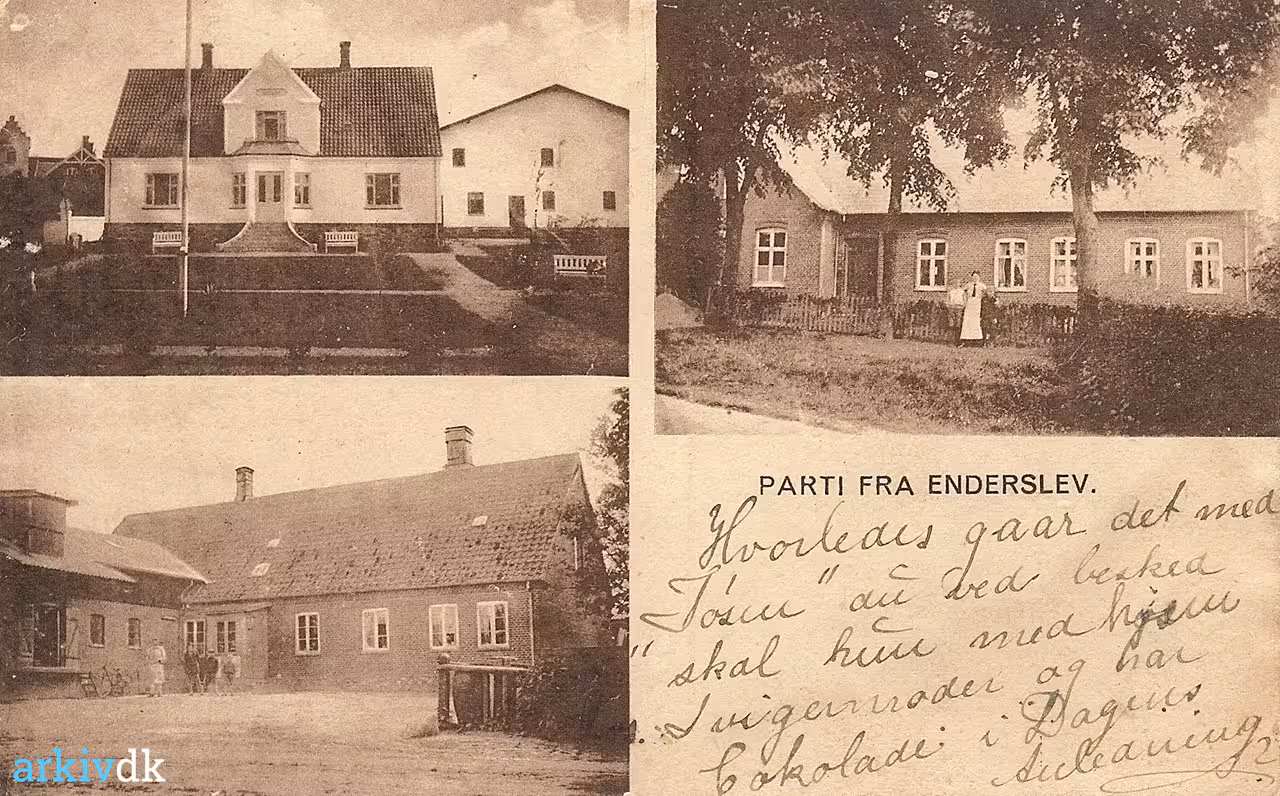 PARTI FRA ENDERSLEV.
Hvorledes gaar det med
"Tösen" du ved besked
skal hun med hjem
Svigermoder og har
Cokolade i Dagens
Anledning?
arkivdk